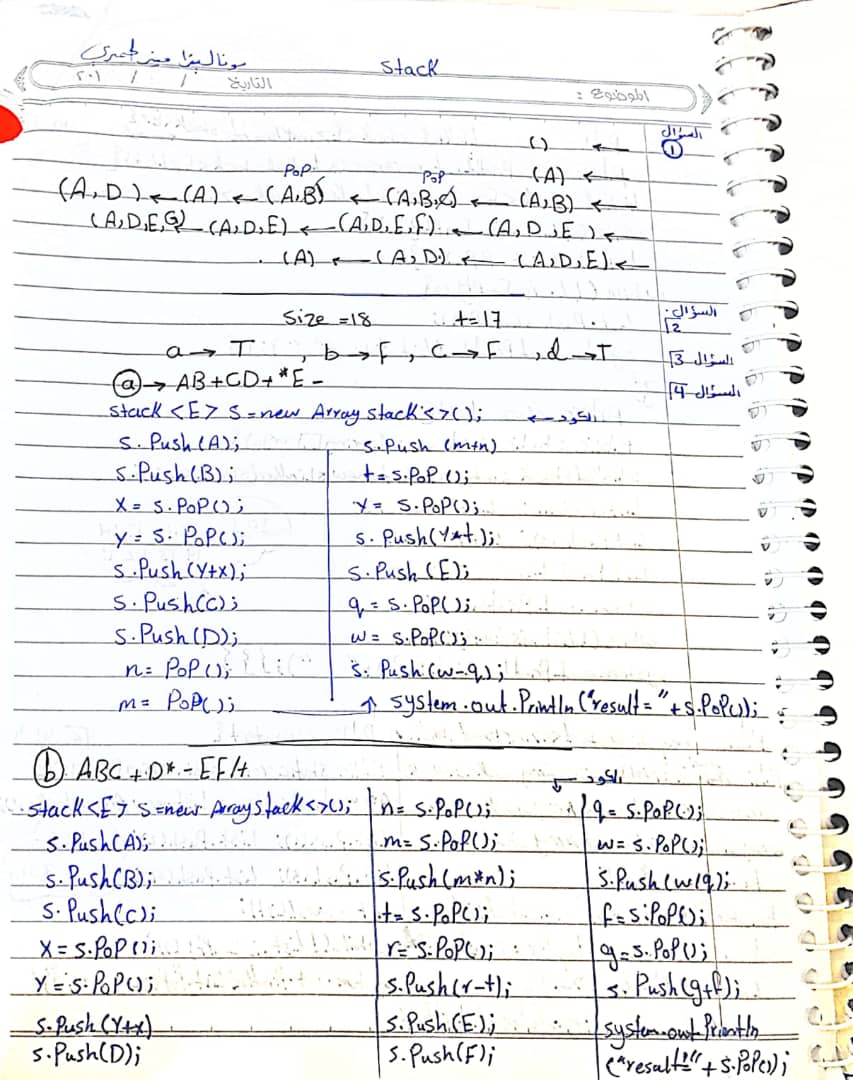 Stack
الموضوع :
التاريخ / / ٢٠١
السؤال ①
() ←
(A) ←
(A,D) ← (A) ← (A,B) ← POP (A,B,C) ← POP (A,B) ←
(A,D,E,G) ← (A,D,E) ← (A,D,E,F) ← (A,D,E) ←
(A) ← (A,D) ← (A,D,E) ←
السؤال 2
Size =18 t=17
السؤال 3
a → T , b → F , c → F , d → T
السؤال 4
ⓐ → AB+CD+*E-
Stack <E> S=new Array stack<>(); ← الكود
S.Push(A);
S.Push(B);
X = S.PoP();
y = S.PoP();
S.Push(Y+x);
S.Push(C);
S.Push(D);
n= PoP();
m= PoP();
S.Push (m+n)
t= S.PoP();
Y= S.PoP();
S.Push(Y*t);
S.Push(E);
q= S.PoP();
w= S.PoP();
S.Push(w-q);
↑ system.out.Println("result="+S.PoP());
ⓑ ABC+D*-EF/+
الكود ←
Stack<E> S=new ArrayStack<>();
S.Push(A);
S.Push(B);
S.Push(C);
X=S.PoP();
Y=S.PoP();
S.Push(Y+x)
S.Push(D);
n= S.PoP();
m= S.PoP();
S.Push(m*n);
t= S.PoP();
r= S.PoP();
S.Push(r-t);
S.Push(E);
S.Push(F);
q= S.PoP();
w= S.PoP();
S.Push(w/q);
f= S.PoP();
g= S.PoP();
S.Push(g+f);
system.out.Println
("result="+S.PoP());